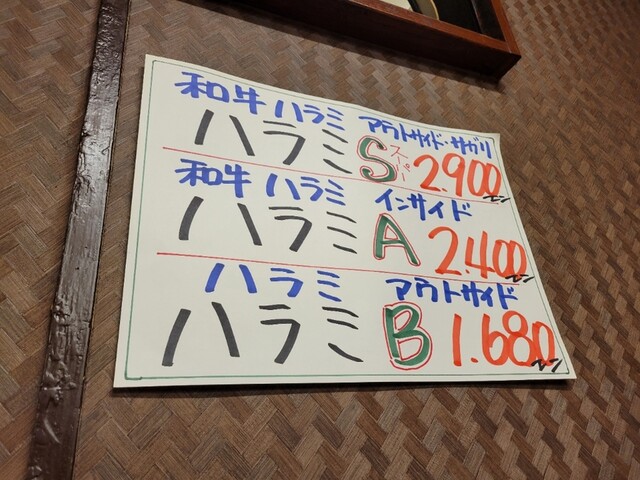 和牛 ハラミ アウトサイド・サガリ
ハラミ S スーパー 2.900
和牛 ハラミ インサイド
ハラミ A 2.400
ハラミ アウトサイド
ハラミ B 1.680